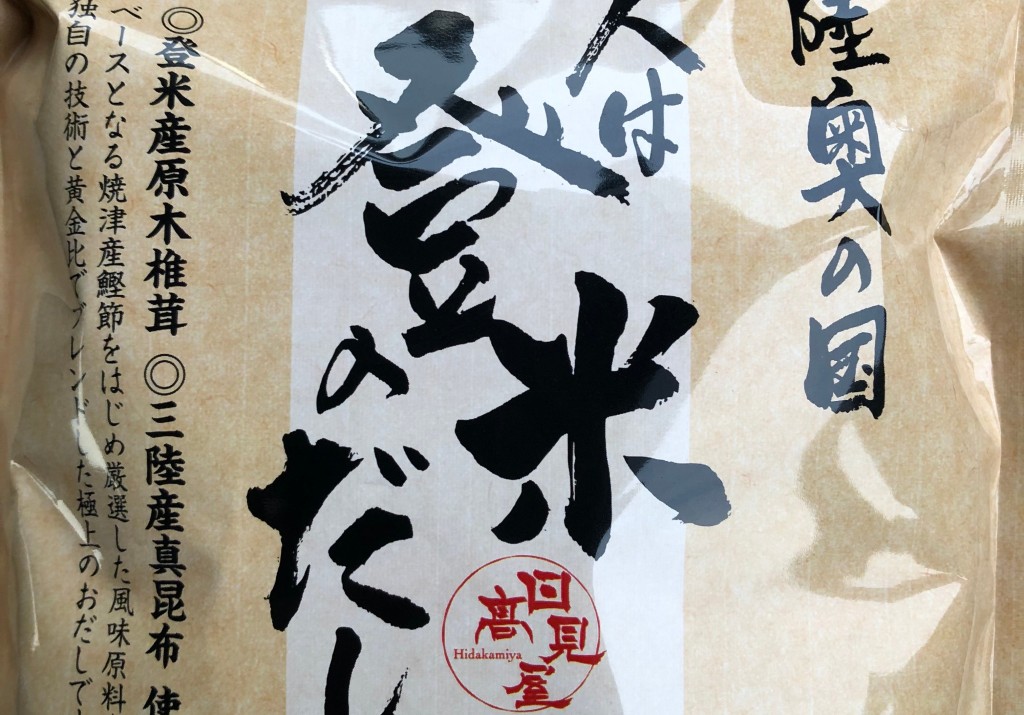 陸奥の国
人は
登米
のだし
日高見屋
Hidakamiya
◎登米産原木椎茸 ◎三陸産真昆布 使
ベースとなる焼津産鰹節をはじめ厳選した風味原料
独自の技術と黄金比でブレンドした極上のおだしで